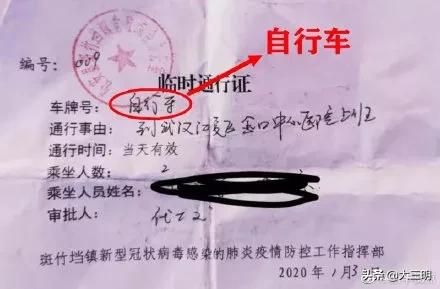 自行车
编号：009
临时通行证
车牌号：自行车
通行事由：到武汉江夏区金口中心医院上班
通行时间：当天有效
乘坐人数：2
乘坐人员姓名：
审批人：
斑竹垱镇新型冠状病毒感染的肺炎疫情防控工作指挥部
2020年1月3
头条 @大三明